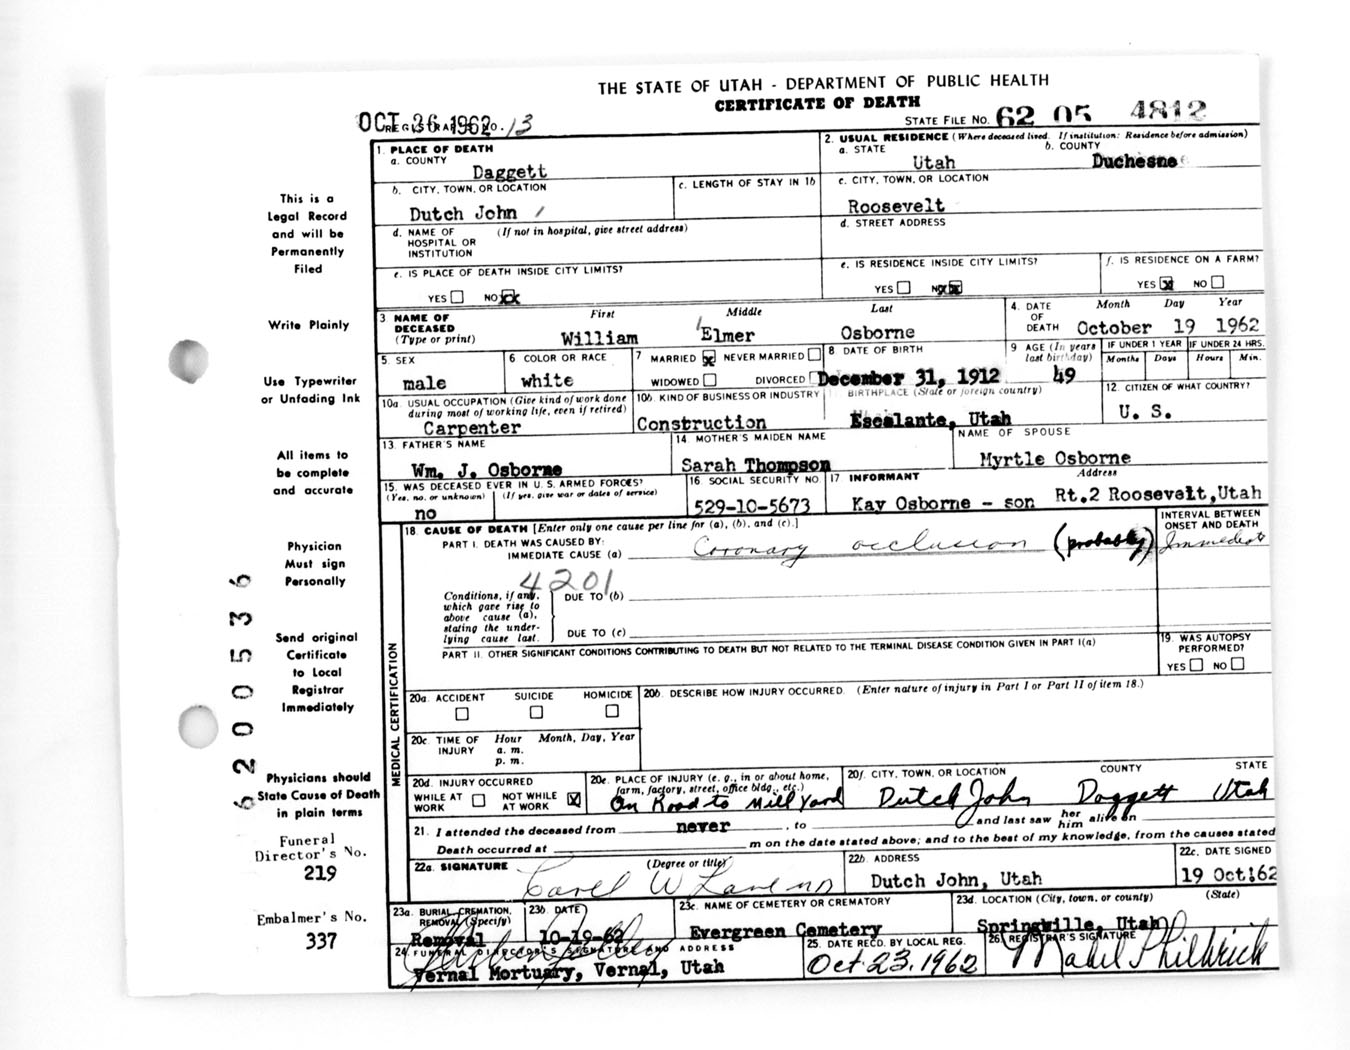 THE STATE OF UTAH - DEPARTMENT OF PUBLIC HEALTH
CERTIFICATE OF DEATH
OCT 26 1962 13
STATE FILE NO. 62 05 4812
1. PLACE OF DEATH
a. COUNTY
Daggett
2. USUAL RESIDENCE (Where deceased lived. If institution: Residence before admission)
a. STATE b. COUNTY
Utah Duchesne
b. CITY, TOWN, OR LOCATION
Dutch John
c. LENGTH OF STAY IN 1b
c. CITY, TOWN, OR LOCATION
Roosevelt
d. NAME OF HOSPITAL OR INSTITUTION (If not in hospital, give street address)
d. STREET ADDRESS
e. IS PLACE OF DEATH INSIDE CITY LIMITS?
YES NO
e. IS RESIDENCE INSIDE CITY LIMITS?
YES
f. IS RESIDENCE ON A FARM?
YES NO
3. NAME OF DECEASED (Type or print)
First Middle Last
William Elmer Osborne
4. DATE OF DEATH
Month Day Year
October 19 1962
5. SEX
male
6 COLOR OR RACE
white
7 MARRIED NEVER MARRIED
WIDOWED DIVORCED
8 DATE OF BIRTH
December 31, 1912
9 AGE (In years last birthday)
49
IF UNDER 1 YEAR
Months Days
IF UNDER 24 HRS.
Hours Min.
10a. USUAL OCCUPATION (Give kind of work done during most of working life, even if retired)
Carpenter
10b. KIND OF BUSINESS OR INDUSTRY
Construction
BIRTHPLACE (State or foreign country)
Escalante, Utah
12. CITIZEN OF WHAT COUNTRY?
U. S.
13. FATHER'S NAME
Wm. J. Osborne
14. MOTHER'S MAIDEN NAME
Sarah Thompson
NAME OF SPOUSE
Myrtle Osborne
15. WAS DECEASED EVER IN U. S. ARMED FORCES?
(Yes, no, or unknown) (If yes, give war or dates of service)
no
16. SOCIAL SECURITY NO.
529-10-5673
17 INFORMANT Address
Kay Osborne - son Rt.2 Roosevelt,Utah
18. CAUSE OF DEATH [Enter only one cause per line for (a), (b), and (c).]
PART I. DEATH WAS CAUSED BY:
IMMEDIATE CAUSE (a) Coronary occlusion (probably)
INTERVAL BETWEEN ONSET AND DEATH
Immediate
4201
Conditions, if any, which gave rise to above cause (a), stating the underlying cause last.
DUE TO (b)
DUE TO (c)
PART II. OTHER SIGNIFICANT CONDITIONS CONTRIBUTING TO DEATH BUT NOT RELATED TO THE TERMINAL DISEASE CONDITION GIVEN IN PART I(a)
19. WAS AUTOPSY PERFORMED?
YES NO
MEDICAL CERTIFICATION
20a. ACCIDENT SUICIDE HOMICIDE
20b. DESCRIBE HOW INJURY OCCURRED. (Enter nature of injury in Part I or Part II of item 18.)
20c. TIME OF INJURY Hour Month, Day, Year
a. m.
p. m.
20d. INJURY OCCURRED
WHILE AT WORK NOT WHILE AT WORK
20e. PLACE OF INJURY (e. g., in or about home, farm, factory, street, office bldg., etc.)
On Road to Mill Yard
20f. CITY, TOWN, OR LOCATION COUNTY STATE
Dutch John Daggett Utah
21. I attended the deceased from never, to and last saw her him alive on
Death occurred at m on the date stated above; and to the best of my knowledge, from the causes stated
22a. SIGNATURE (Degree or title)
22b. ADDRESS
Dutch John, Utah
22c. DATE SIGNED
19 Oct 62
23a. BURIAL, CREMATION, REMOVAL (Specify)
Removal
23b. DATE
10-19-62
23c. NAME OF CEMETERY OR CREMATORY
Evergreen Cemetery
23d. LOCATION (City, town, or county) (State)
Springville, Utah
24. FUNERAL DIRECTOR'S SIGNATURE AND ADDRESS
Vernal Mortuary, Vernal, Utah
25. DATE RECD. BY LOCAL REG.
Oct 23, 1962
26. REGISTRAR'S SIGNATURE
Mabel Philbrick
This is a
Legal Record
and will be
Permanently
Filed
Write Plainly
Use Typewriter
or Unfading Ink
All items to
be complete
and accurate
Physician
Must sign
Personally
Send original
Certificate
to Local
Registrar
Immediately
Physicians should
State Cause of Death
in plain terms
Funeral
Director's No.
219
Embalmer's No.
337
6200536